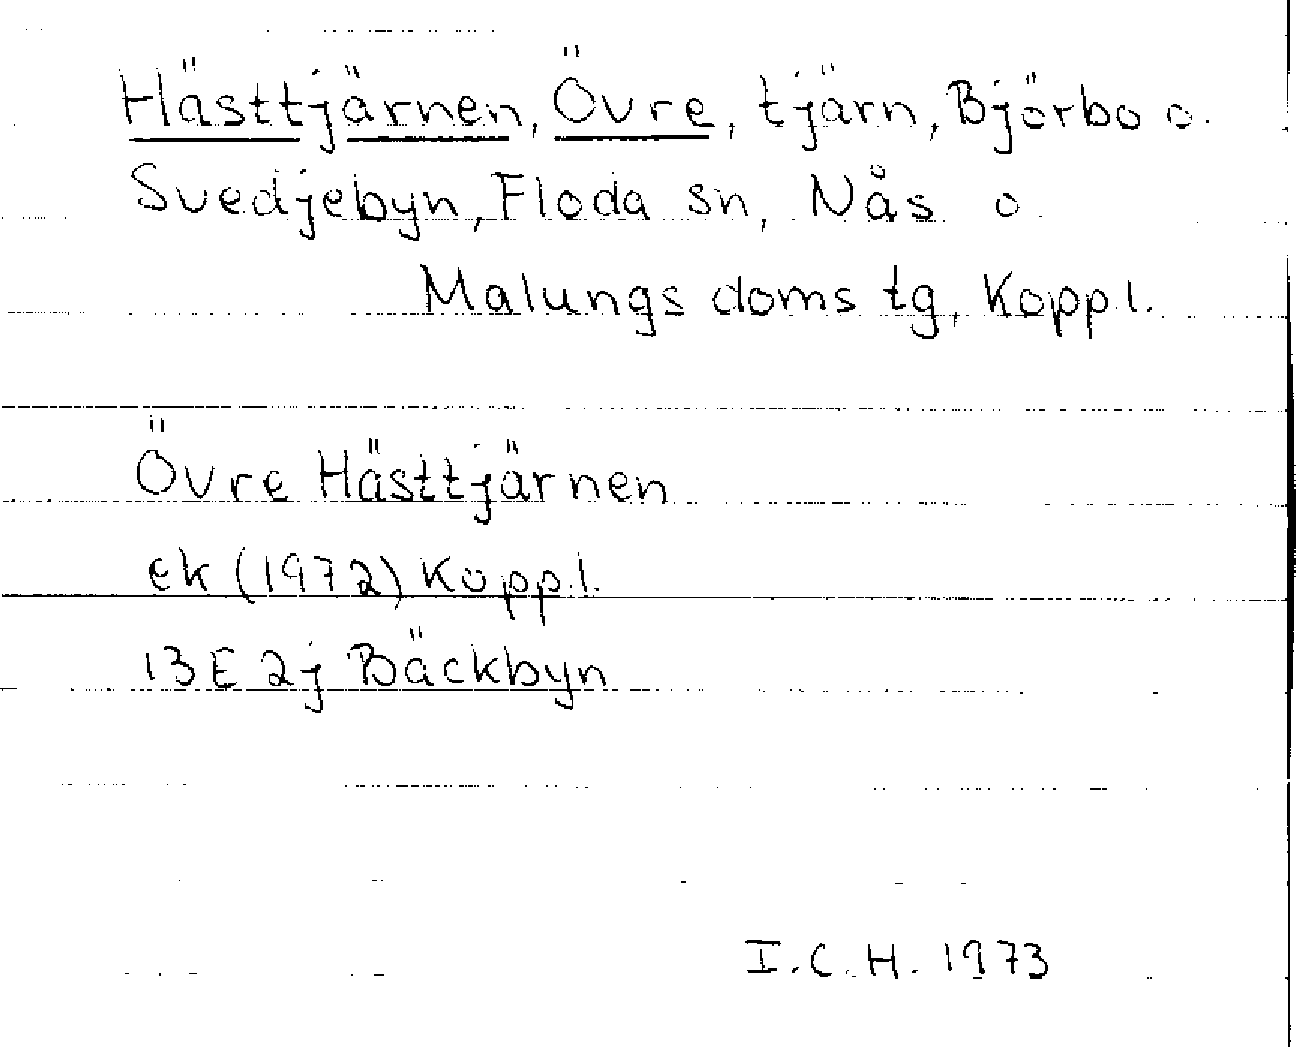 Hästtjärnen, Övre, tjärn, Björbo o.
Svedjebyn, Floda sn, Nås o.
Malungs doms tg, Koppl.
Övre Hästtjärnen
ek (1972) Koppl.
13E 2j Bäckbyn
I.C.H. 1973